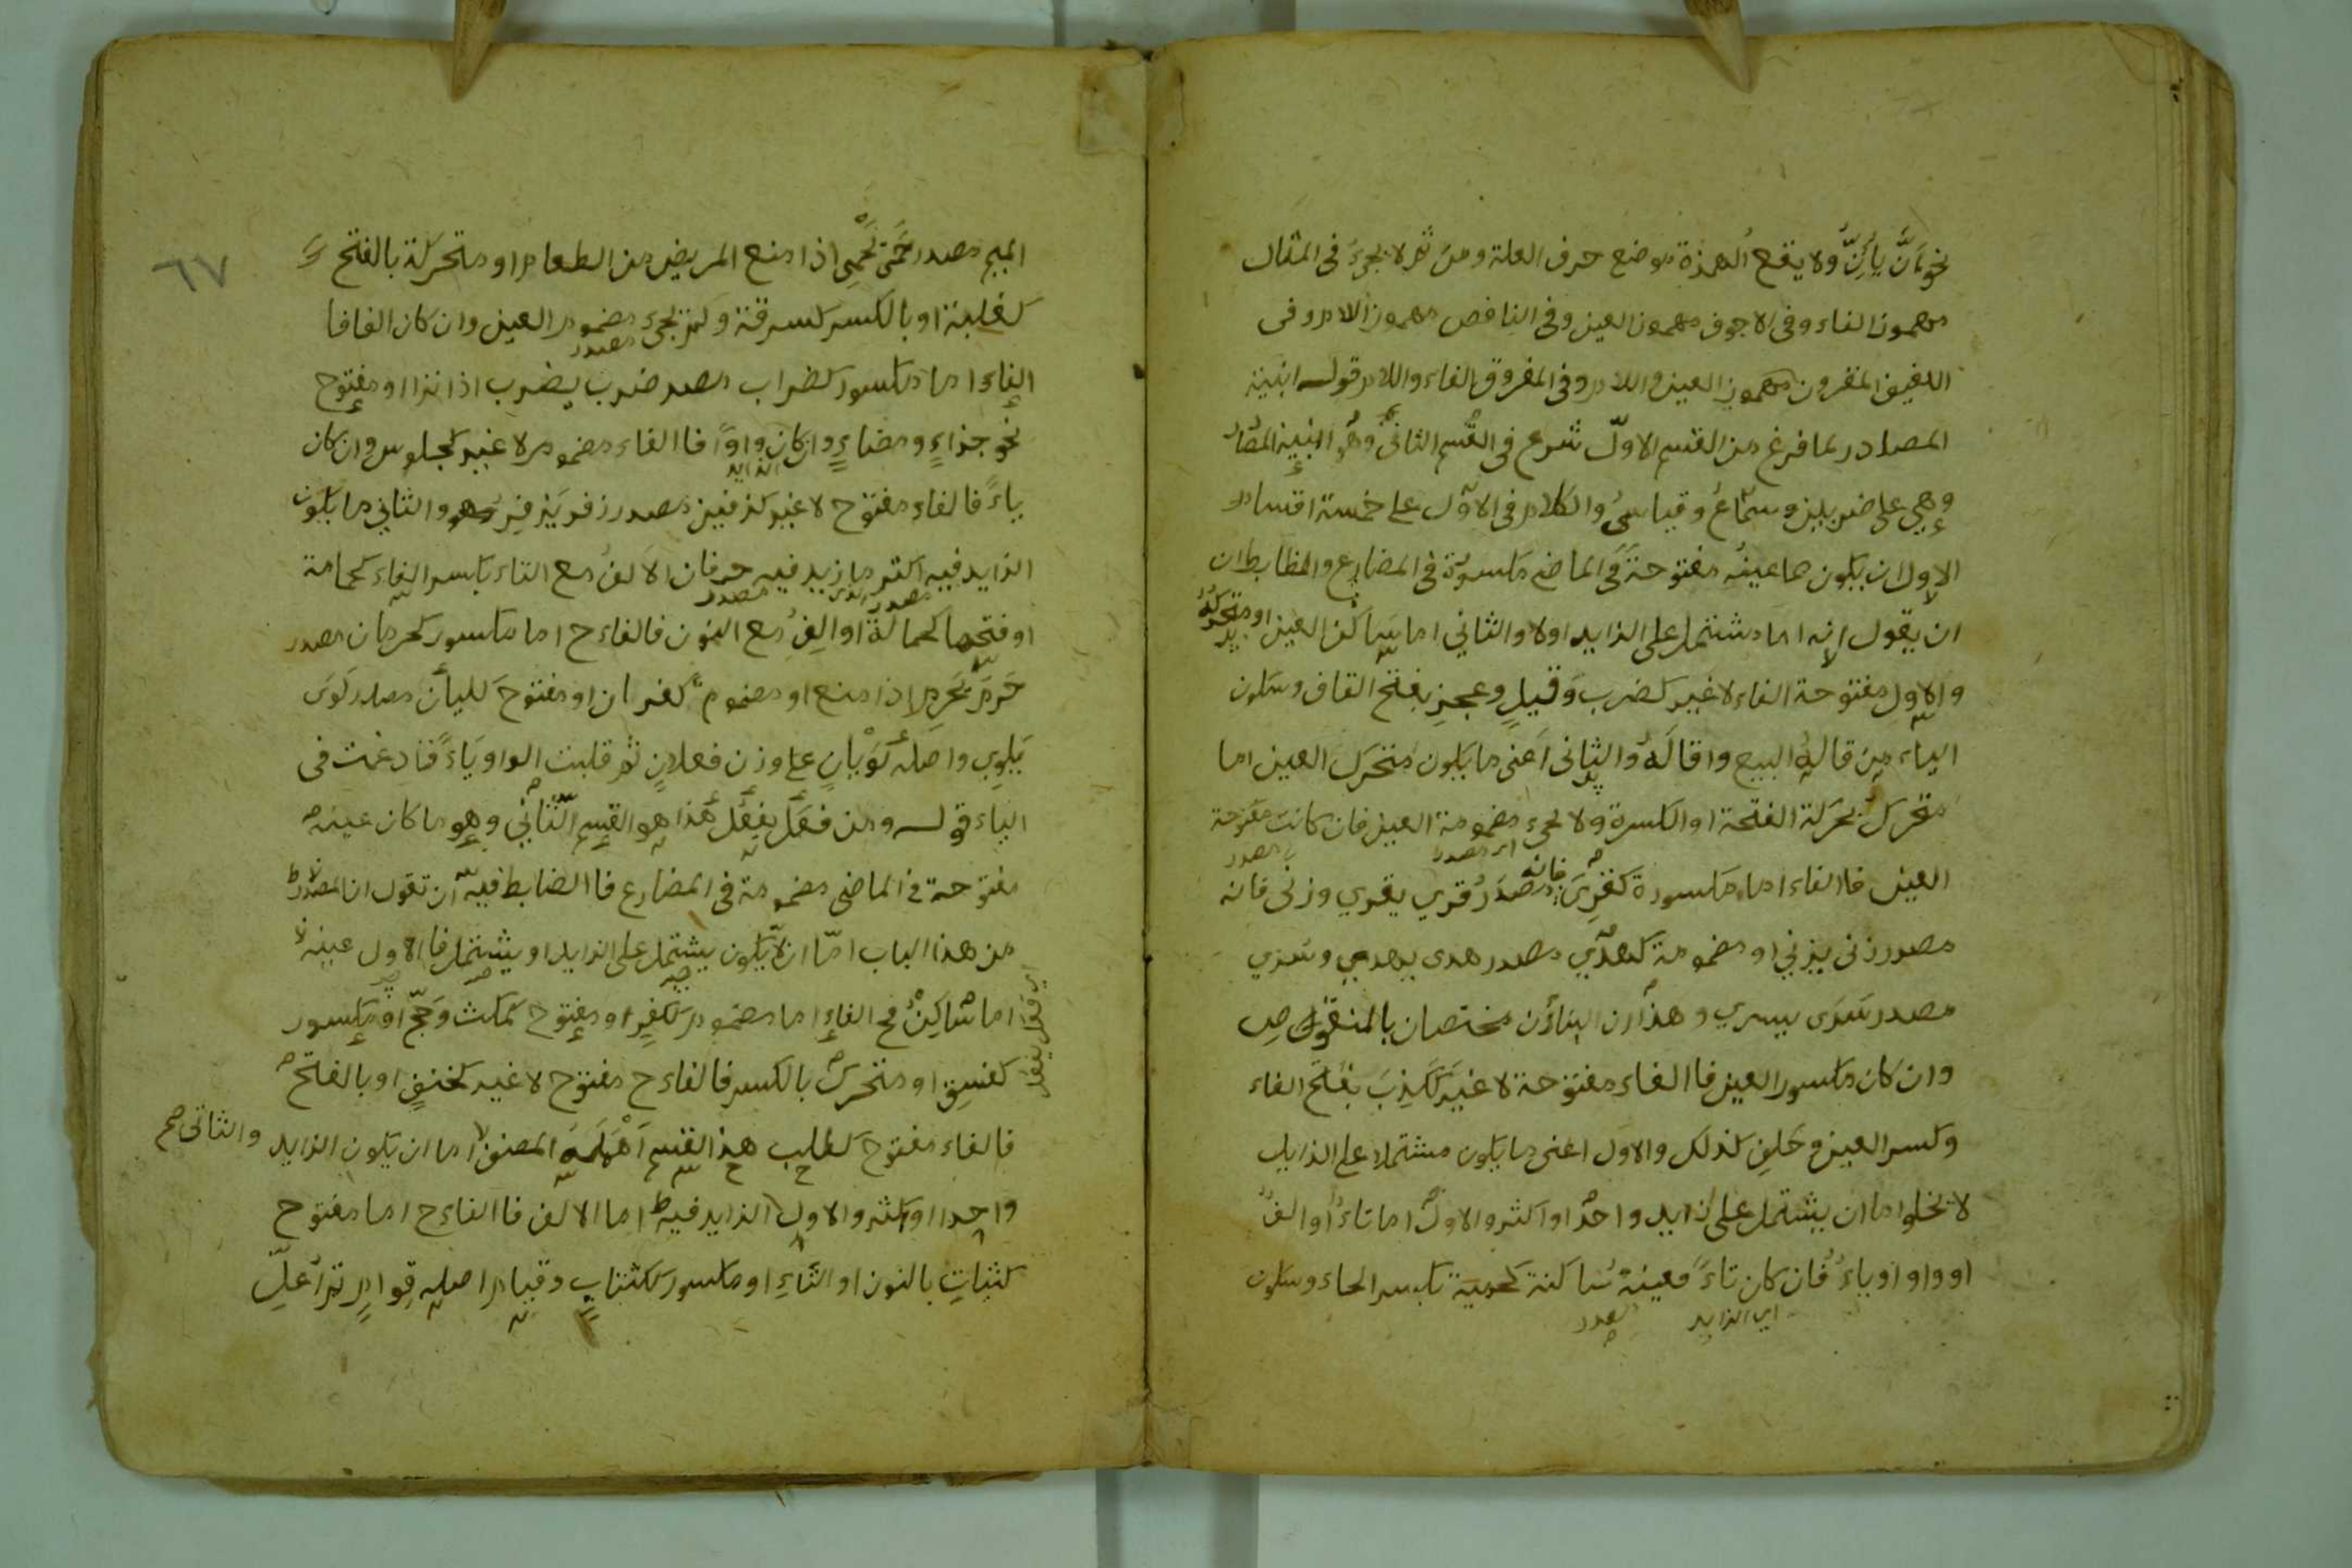 نحو أَنَّ يَأِنُّ ولا يقع الهمزة موضع حرف العلة ومن ثم لا يجيء في المثال
مهموز الفاء وفي الاجوف مهموز العين وفي الناقص مهموز اللام وفي
اللفيف المقرون مهموز العين واللام وفي المفروق الفاء واللام قوله ابنية
المصادر لما فرغ من القسم الاول شرع في القسم الثاني وهو ابنية المصادر
وهي على ضربين سماعي وقياسي والكلام في الاول على خمسة اقسام
الاول ان يكون ما عينه مفتوحة في الماضي مكسورة في المضارع والضابط ان
ان يقول انه اما مشتمل على الزايد اولا والثاني اما ساكن العين او متحركه
والاول مفتوحة الفاء لا غير كضرب وقيل وعجز بفتح القاف وسكون
الياء من قاله البيع واقاله والثاني اعني ما يكون متحرك العين اما
متحرك بحركة الفتحة او الكسرة ولا يجيء مضمومة العين فان كانت مفتوحة
العين فاالفاء اما مكسورة كقرى فانه مصدر قري يقري وزنى فانه
مصدر زنى يزني او مضمومة كهدي مصدر هدى يهدي وسري
مصدر سرى يسري وهذان البناؤن مختصان بالمنقوص
وان كان مكسور العين فاالفاء مفتوحة لا غير ككذب بفتح الفاء
وكسر العين وحلف كذلك والاول اعني ما يكون مشتملا على الزايد
لا يخلوا اما ان يشتمل على زايد واحد او اكثر والاول اما تاء او الف
او واو او ياء فان كان تاء فعينه ساكنة كحمية بكسر الحاء وسكون
اي الزايد مصدر
٦٧
الميم مصدر حمى يحمي اذا منع المريض من الطعام او متحركة بالفتح
كغلبة او بالكسر كسرقة ولم يجيء مضموم العين وان كان الفا فا
الفاء اما مكسور كضراب مصدر ضرب يضرب اذا نزا او مفتوح
نحو جزاء ومضاء وان كان واوا فاالفاء مضموم لا غير كجلوس وان كان
ياء فالفاء مفتوح لا غير كزفير مصدر زفر يزفر والثاني ما يكون
الزايد فيه اكثر ما زيد فيه حرفان الالف مع التاء بكسر الفاء كحمامة
او فتحها كحمالة او الف مع النون فالفاء ح اما مكسور كحرمان مصدر
حرم يحرم اذا منع او مضموم كغفران او مفتوح كليان مصدر لوى
يلوي واصله لويان على وزن فعلان ثم قلبت الواو ياء فادغمت في
الياء قوله ومن فعل يفعل هذا هو القسم الثاني وهو ما كان عينه
مفتوحة في الماضي مضمومة في المضارع فاالضابط فيه ان تقول ان المصدر
من هذا الباب اما ان لا يكون يشتمل على الزايد او يشتمل فا الاول عينه
اما ساكن فح الفاء اما مضموم ككفر او مفتوح كمكث وحج او مكسور
كفسق او متحرك بالكسر فالفاء ح مفتوح لا غير كخنق او بالفتح
فالفاء مفتوح كطلب هذ القسم اهمله المصنف اما ان يكون الزايد والثاني صح
واحدا او اكثر والاول الزايد فيه اما الالف فاالفاء ح اما مفتوح
كثبات بالنون او الثاء او مكسور ككتاب وقيام اصله قوام ثم اعل